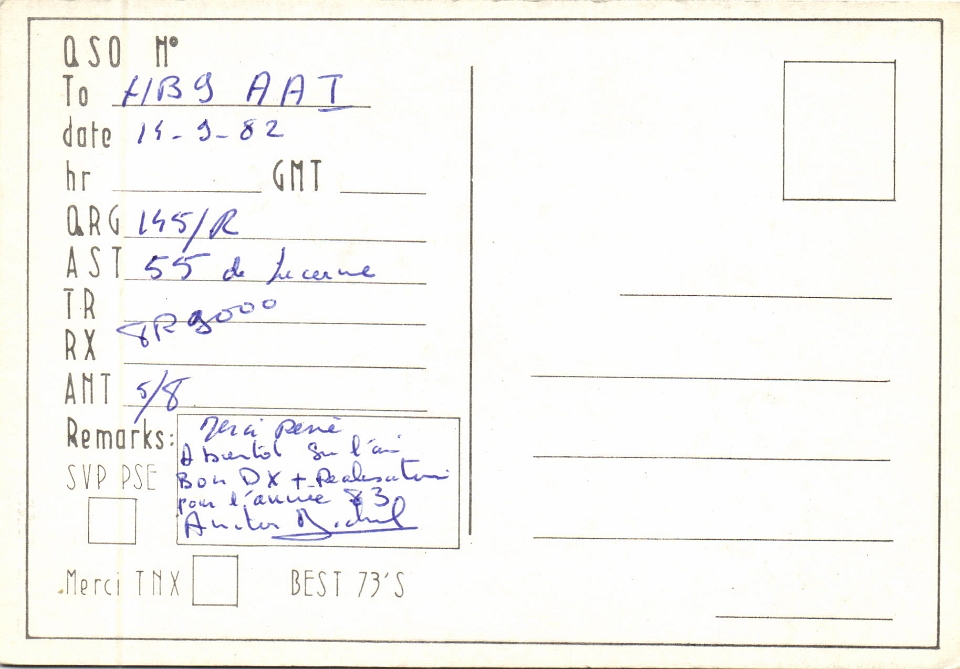 QSO N°
To HB9 AAI
date 14-9-82
hr GMT
QRG 145/R
AST 55 de Lucerne
TR
RX TR9000
ANT 5/8
Remarks: Merci René
A bientot sur l'air
Bon DX + Realisation
SVP PSE
pour l'année 83
Michel
Merci TNX BEST 73'S